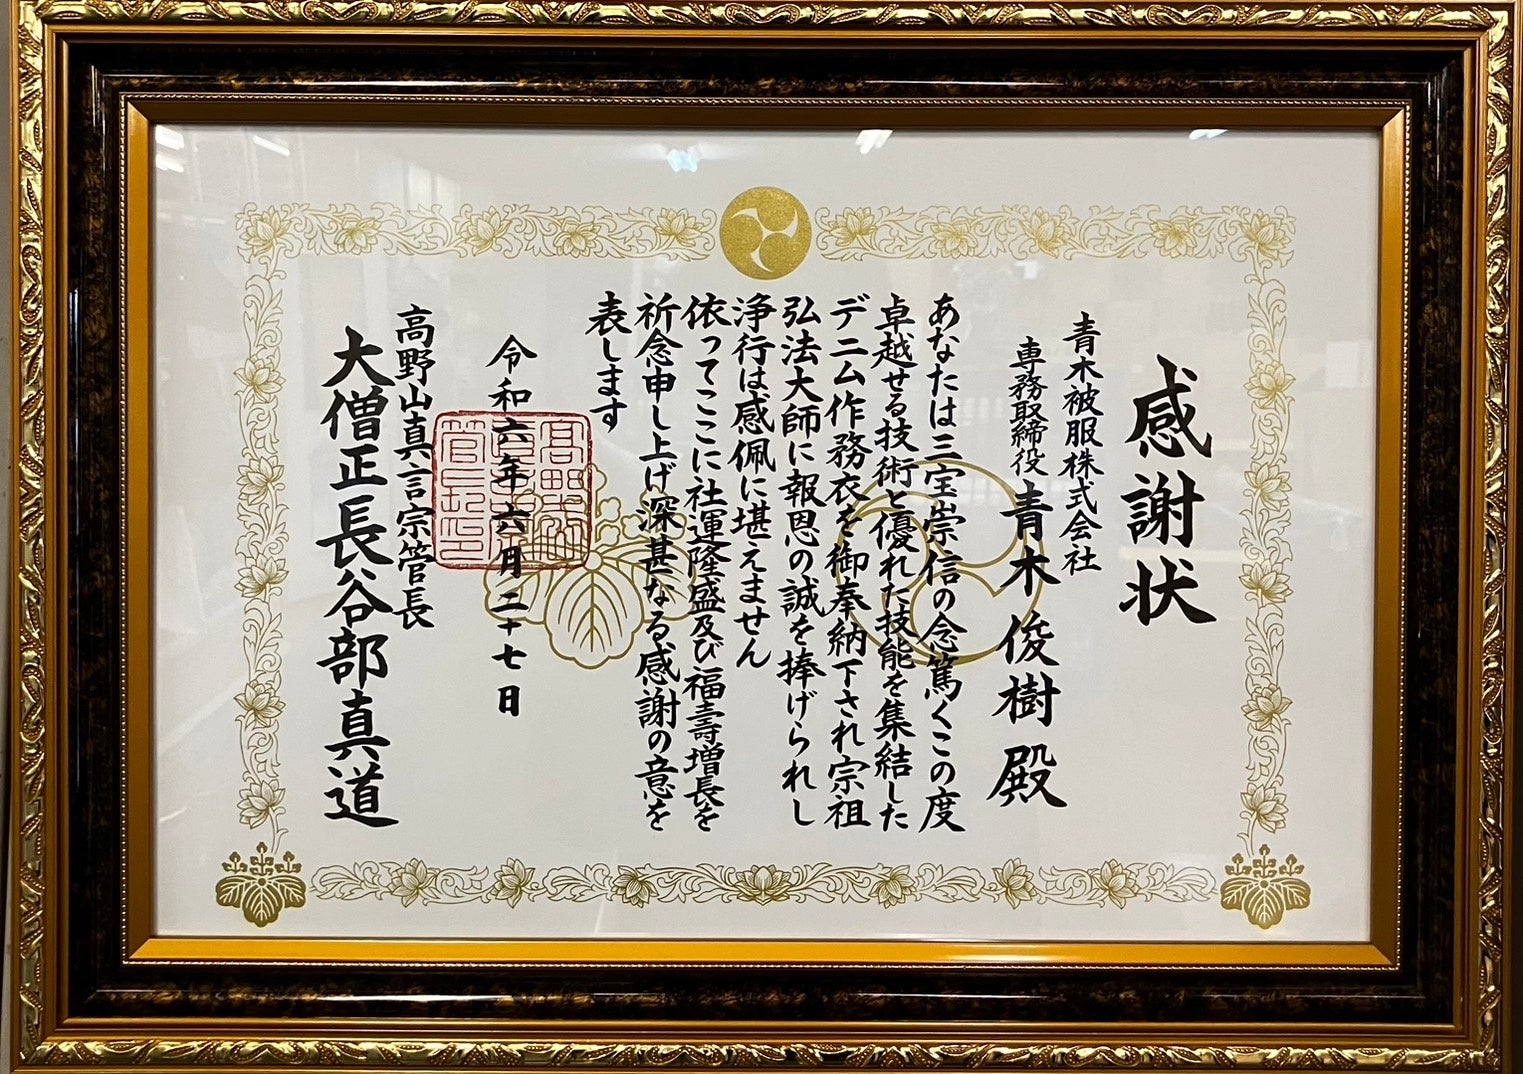 感謝状
青木被服株式会社
専務取締役 青木俊樹殿
あなたは三宝崇信の念篤くこの度
卓越せる技術と優れた技能を集結した
デニム作務衣を御奉納下され宗祖
弘法大師に報恩の誠を捧げられし
浄行は感佩に堪えません
依ってここに社運隆盛及び福壽増長を
祈念申し上げ深甚なる感謝の意を
表します
令和六年六月二十七日
高野山真言宗管長
大僧正長谷部真道